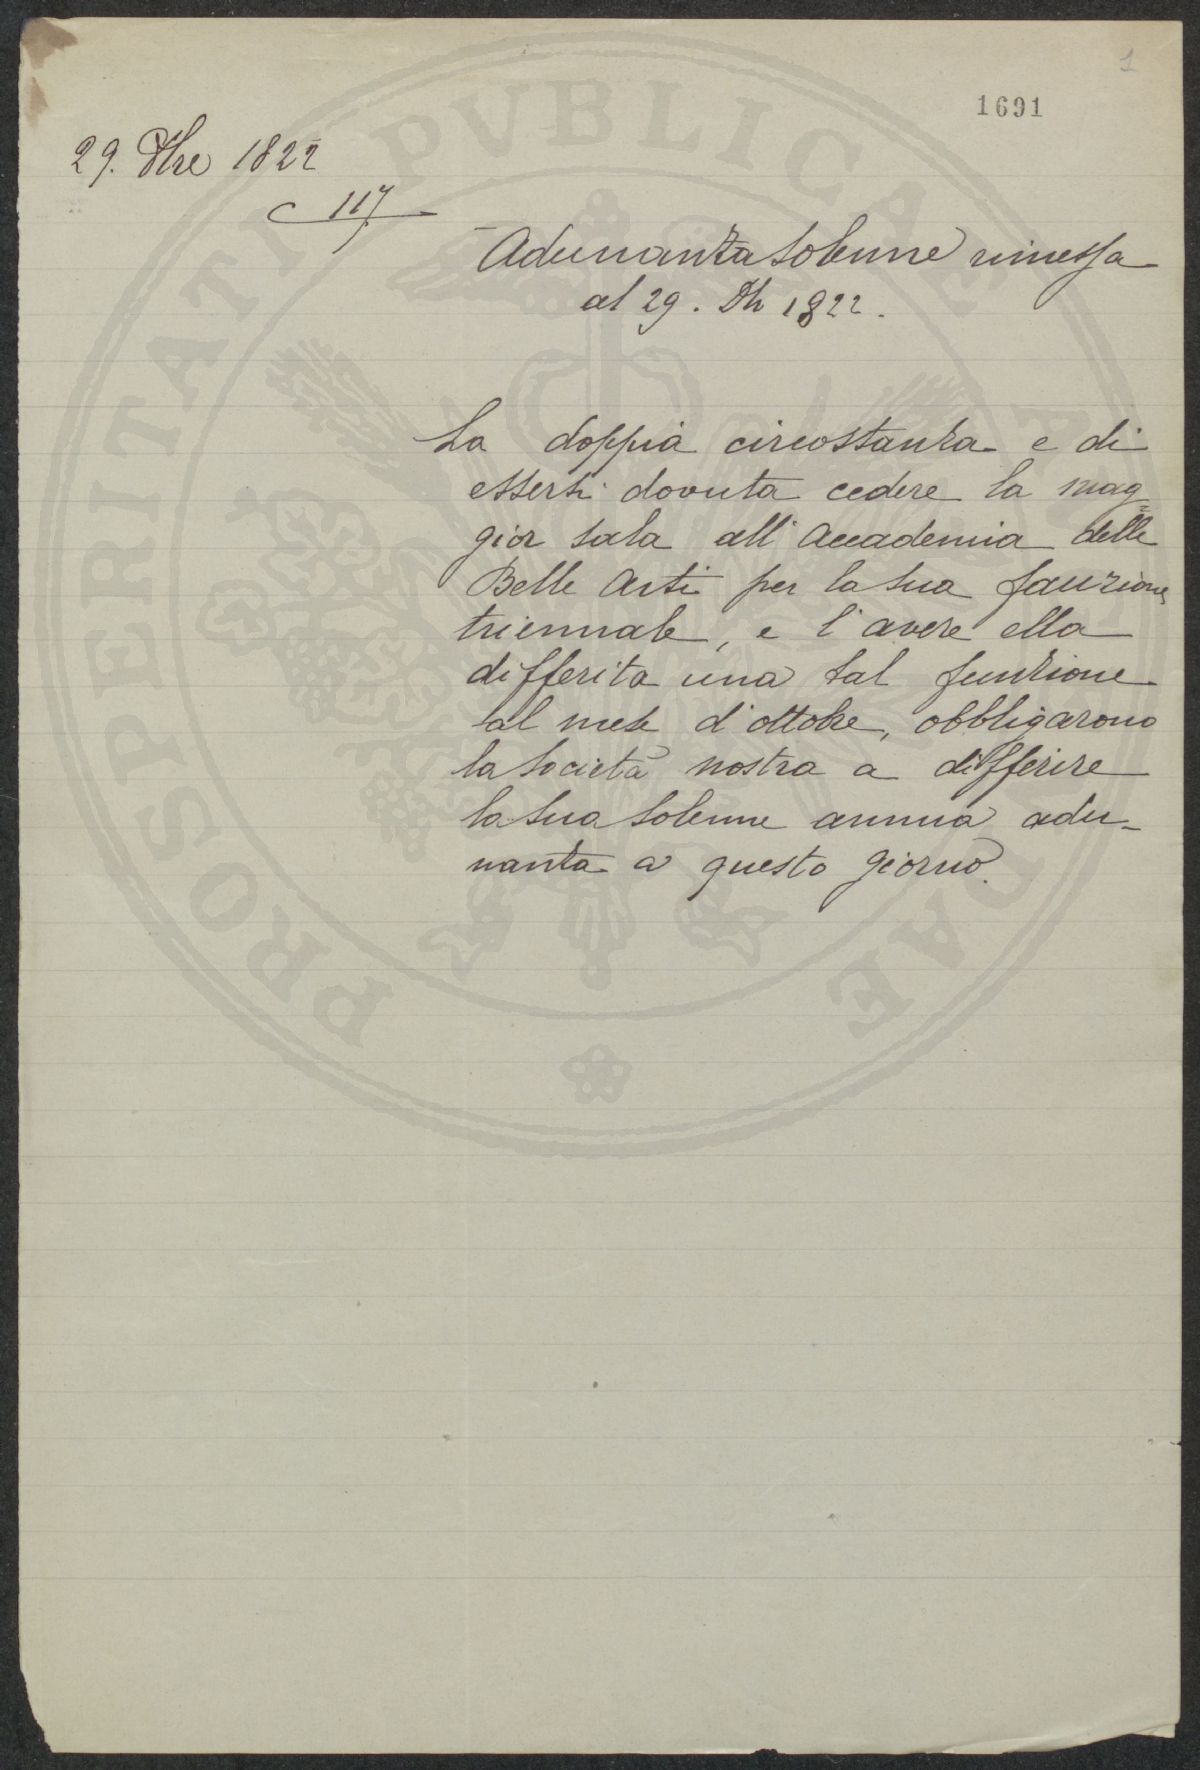 1
1691
29. Xbre 1822
117
Adunanza solenne rimessa
al 29. Xb 1822.
La doppia circostanza e di
essersi dovuta cedere la mag=
gior sala all'Accademia delle
Belle Arti per la sua funzione
triennale, e l'avere ella
differita una tal funzione
al mese d'ottobre, obbligarono
la Società nostra a differire
la sua solenne annua adu-
nanza a questo giorno.
PROSPERITATI PVBLICAE